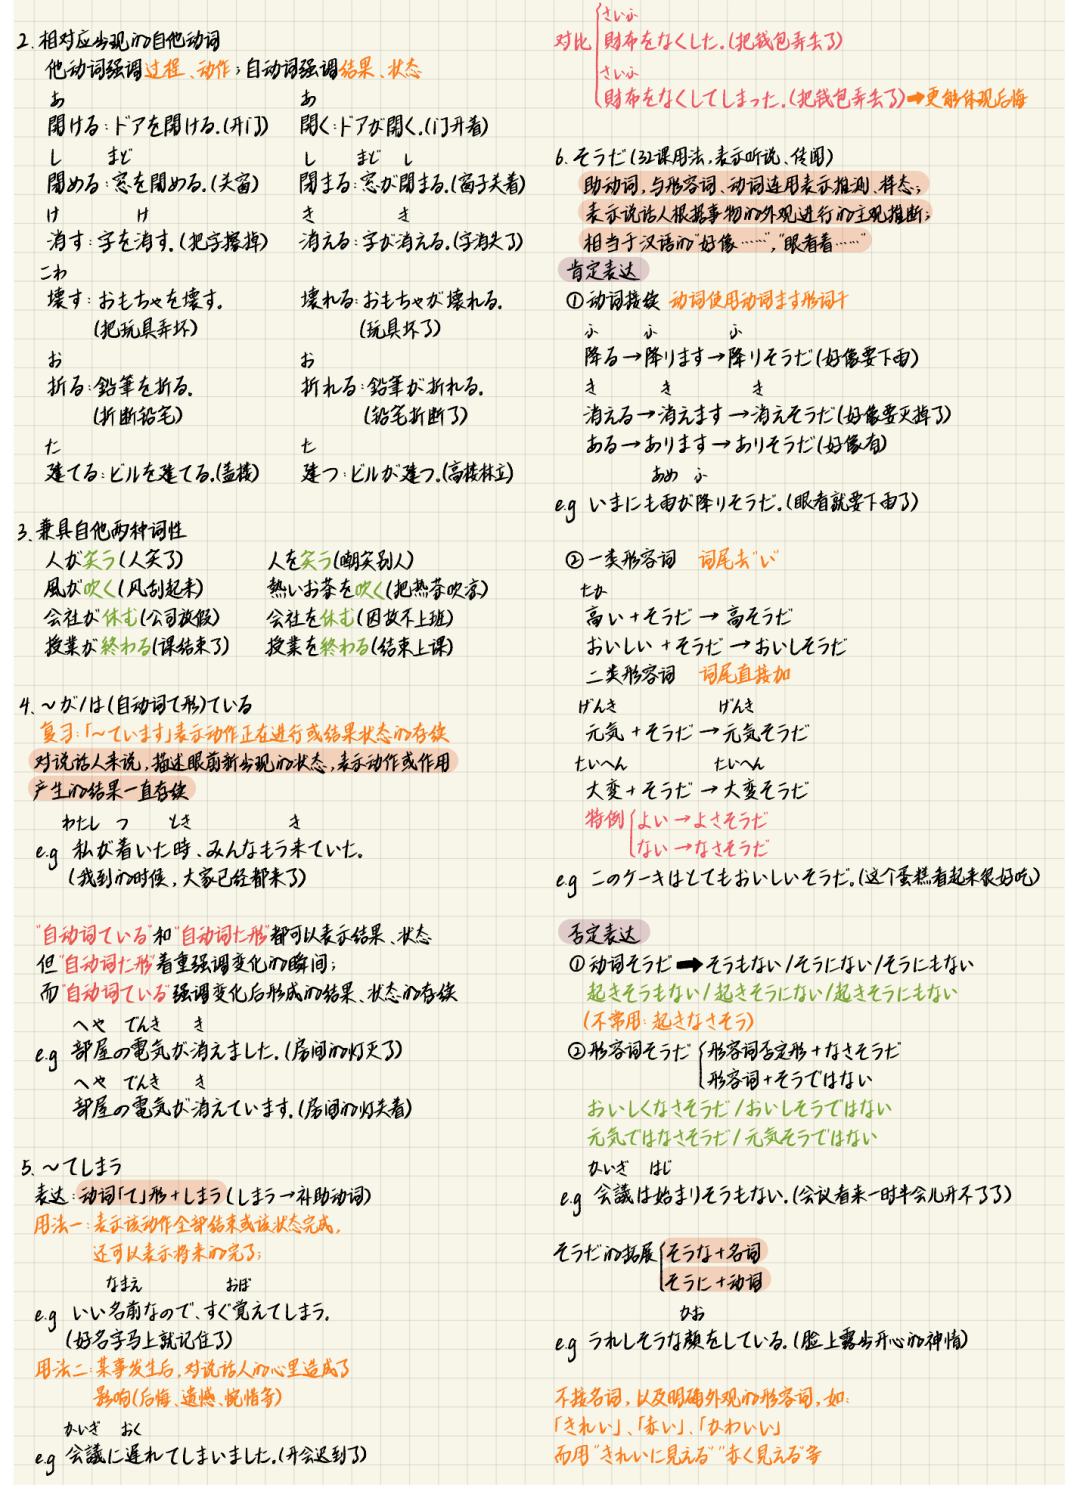 2. 相对应出现的自他动词
他动词强调过程、动作；自动词强调结果、状态
あ
開ける：ドアを開ける。(开门)
あ
開く：ドアが開く。(门开着)
し まど
閉める：窓を閉める。(关窗)
し まど し
閉まる：窓が閉まる。(窗子关着)
け け
消す：字を消す。(把字擦掉)
き き
消える：字が消える。(字消失了)
こわ
壊す：おもちゃを壊す。
(把玩具弄坏)
壊れる：おもちゃが壊れる。
(玩具坏了)
お
折る：鉛筆を折る。
(折断铅笔)
お
折れる：鉛筆が折れる。
(铅笔折断了)
た
建てる：ビルを建てる。(盖楼)
た
建つ：ビルが建つ。(高楼林立)
3. 兼具自他两种词性
人が笑う(人笑了) 人を笑う(嘲笑别人)
風が吹く(风刮起来) 熱いお茶を吹く(把热茶吹凉)
会社が休む(公司放假) 会社を休む(因故不上班)
授業が終わる(课结束了) 授業を終わる(结束上课)
4. ～が/は(自动词て形)ている
复习：「～ています」表示动作正在进行或结果状态的存续
对说话人来说，描述眼前新出现的状态，表示动作或作用
产生的结果一直存续
わたし つ とき き
e.g 私が着いた時、みんなもう来ていた。
(我到的时候，大家已经都来了)
"自动词ている"和"自动词た形"都可以表示结果、状态
但"自动词た形"着重强调变化的瞬间；
而"自动词ている"强调变化后形成的结果、状态的存续
へや でんき き
e.g 部屋の電気が消えました。(房间的灯灭了)
へや でんき き
部屋の電気が消えています。(房间的灯关着)
5. ～てしまう
表达：动词「て」形＋しまう(しまう→补助动词)
用法一：表示该动作全部结束或该状态完成，
还可以表示将来的完了；
なまえ おぼ
e.g いい名前なので、すぐ覚えてしまう。
(好名字马上就记住了)
用法二：某事发生后，对说话人的心里造成了
影响(后悔、遗憾、惋惜等)
かいぎ おく
e.g 会議に遅れてしまいました。(开会迟到了)
さいふ
对比 財布をなくした。(把钱包弄丢了)
さいふ
財布をなくしてしまった。(把钱包弄丢了)➡更能体现后悔
6. そうだ(32课用法，表示听说、传闻)
助动词，与形容词、动词连用表示推测、样态；
表示说话人根据事物的外观进行的主观推断；
相当于汉语的"好像……"，"眼看着……"
肯定表达
①动词接续 动词使用动词ます形词干
ふ ふ ふ
降る→降ります→降りそうだ(好像要下雨)
き き き
消える→消えます→消えそうだ(好像要灭掉了)
ある→あります→ありそうだ(好像有)
あめ ふ
e.g いまにも雨が降りそうだ。(眼看就要下雨了)
②一类形容词 词尾去"い"
たか
高い＋そうだ→高そうだ
おいしい＋そうだ→おいしそうだ
二类形容词 词尾直接加
げんき げんき
元気＋そうだ→元気そうだ
たいへん たいへん
大変＋そうだ→大変そうだ
特例 よい→よさそうだ
ない→なさそうだ
e.g このケーキはとてもおいしいそうだ。(这个蛋糕看起来很好吃)
否定表达
①动词そうだ➡そうもない/そうにない/そうにもない
起きそうもない/起きそうにない/起きそうにもない
(不常用：起きなさそう)
②形容词そうだ 形容词否定形＋なさそうだ
形容词＋そうではない
おいしくなさそうだ/おいしそうではない
元気ではなさそうだ/元気そうではない
かいぎ はじ
e.g 会議は始まりそうもない。(会议看来一时半会儿开不了了)
そうだ的拓展 そうな＋名词
そうに＋动词
かお
e.g うれしそうな顔をしている。(脸上露出开心的神情)
不接名词，以及明确外观的形容词，如：
「きれい」、「赤い」、「かわいい」
而用"きれいに見える""赤く見える"等